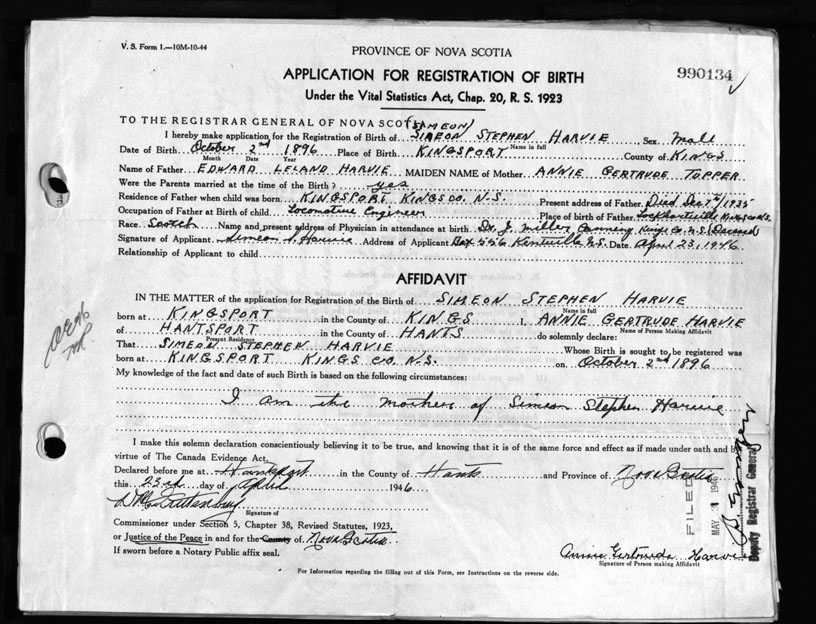 V. S. Form 1.—10M-10-44
PROVINCE OF NOVA SCOTIA
990134
APPLICATION FOR REGISTRATION OF BIRTH
Under the Vital Statistics Act, Chap. 20, R. S. 1923
(SIMEON)
TO THE REGISTRAR GENERAL OF NOVA SCOT
I hereby make application for the Registration of Birth of SIMEON STEPHEN HARVIE Sex Male
Name in full
Date of Birth October 2nd 1896 Place of Birth KINGSPORT County of KINGS
Month Date Year
Name of Father EDWARD LELAND HARVIE MAIDEN NAME of Mother ANNIE GERTRUDE TUPPER
Were the Parents married at the time of the Birth? yes
Residence of Father when child was born KINGSPORT KINGS CO. N.S. Present address of Father Died Dec 7th/1925
Occupation of Father at Birth of child Locomotive Engineer Place of birth of Father Lockhartville Kings Co. N.S.
Race Scotch Name and present address of Physician in attendance at birth Dr. J. Miller Canning Kings Co. N.S. (Deceased)
Signature of Applicant Simeon S. Harvie Address of Applicant Box 556 Kentville N.S. Date April 23, 1946
Relationship of Applicant to child
AFFIDAVIT
IN THE MATTER of the application for Registration of the Birth of SIMEON STEPHEN HARVIE
Name in full
born at KINGSPORT in the County of KINGS I, ANNIE GERTRUDE HARVIE
Name of Person Making Affidavit
of HANTSPORT in the County of HANTS do solemnly declare:
Present Residence
That SIMEON STEPHEN HARVIE Whose Birth is sought to be registered was
born at KINGSPORT KINGS CO. N.S. on October 2nd 1896
My knowledge of the fact and date of such Birth is based on the following circumstances:
I am the mother of Simeon Stephen Harvie
I make this solemn declaration conscientiously believing it to be true, and knowing that it is of the same force and effect as if made under oath and by
virtue of The Canada Evidence Act.
Declared before me at Hantsport in the County of Hants and Province of Nova Scotia
this 23rd day of April 1946
Signature of
Commissioner under Section 5, Chapter 38, Revised Statutes, 1923,
or Justice of the Peace in and for the County of Nova Scotia
If sworn before a Notary Public affix seal.
Annie Gertrude Harvie
Signature of Person making Affidavit
For Information regarding the filling out of this Form, see Instructions on the reverse side.
FILED
MAY 1 1946
Deputy Registrar General